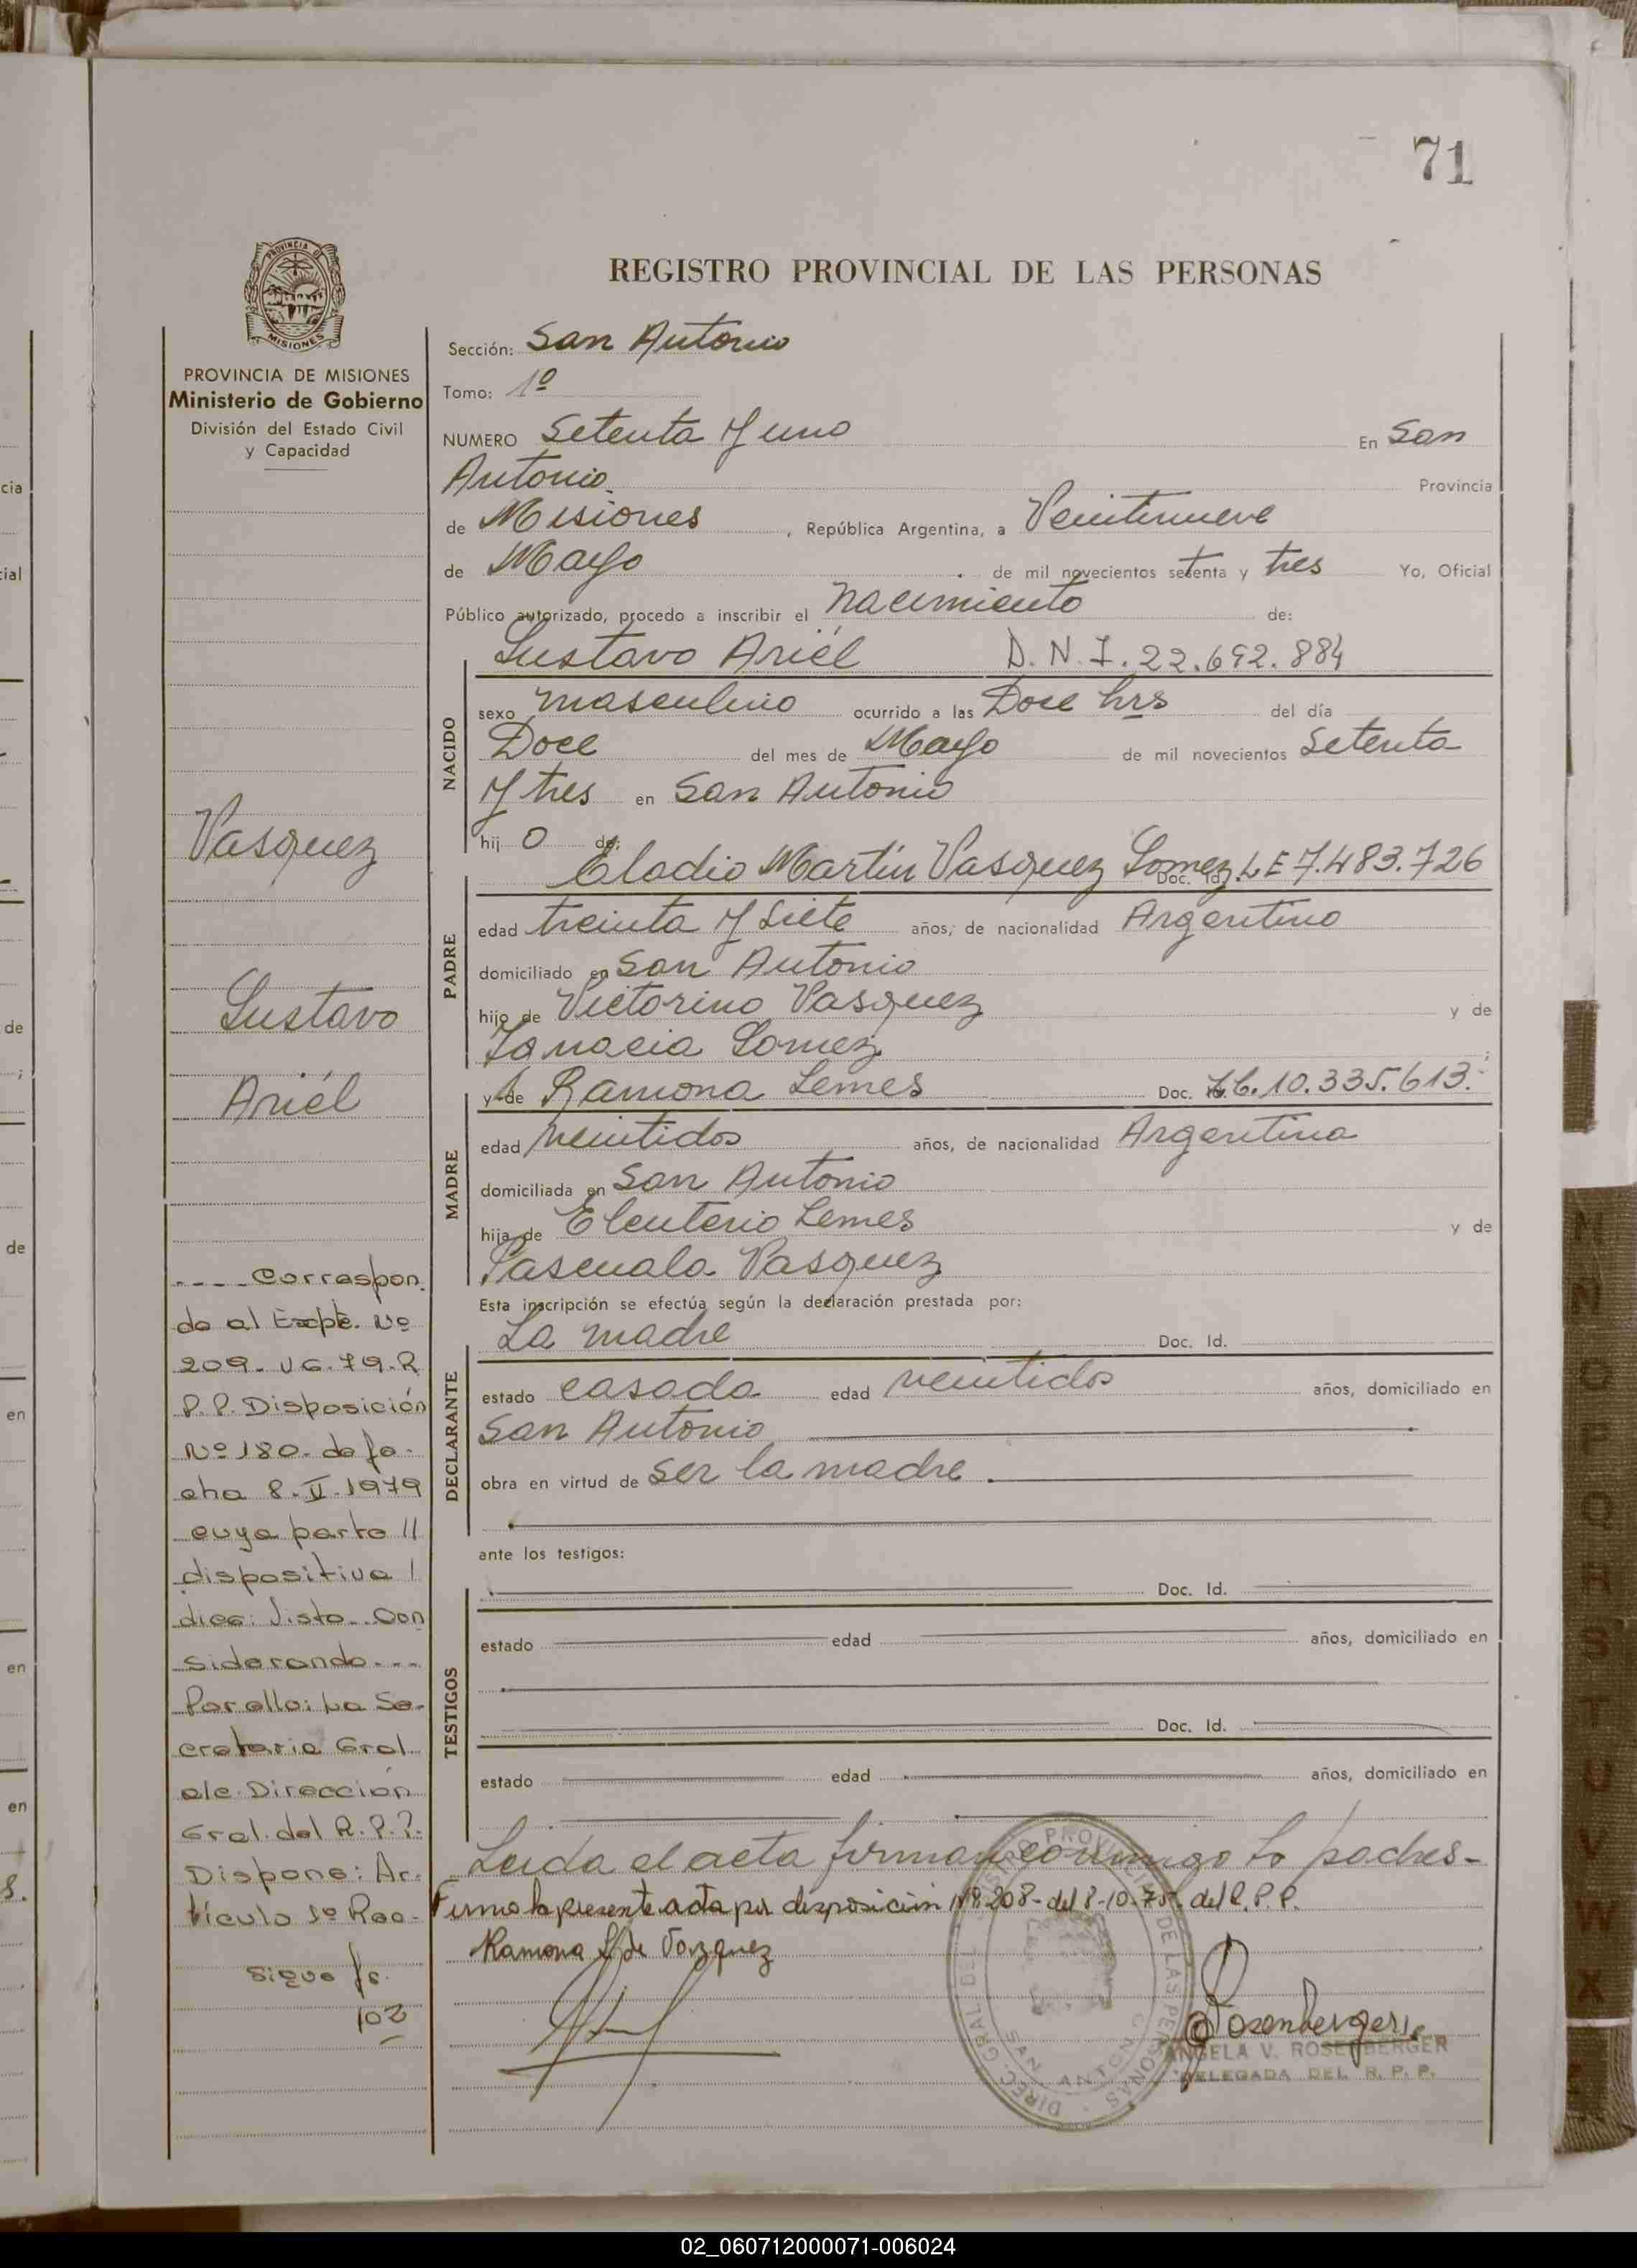 71
PROVINCIA DE
MISIONES
PROVINCIA DE MISIONES
Ministerio de Gobierno
División del Estado Civil
y Capacidad
Vasquez
Gustavo
Ariél
---- Correspon
de al Expte. Nº
209. UG. 79. R
P.P. Disposición
Nº 180. de fe-
cha 8. II. 1979
cuya parte //
dispositiva /
dice: Visto.. Con
siderando ---
Por ello: La Se-
cretaria Gral.
a/c. Dirección
Gral. del R.P.P.
Dispone: Ar-
tículo 1º Rec-
sigue fs.
102
REGISTRO PROVINCIAL DE LAS PERSONAS
Sección: San Antonio
Tomo: 1º
NUMERO Setenta y uno En San
Antonio. Provincia
de Misiones, República Argentina, a Veintinueve
de Mayo de mil novecientos setenta y tres Yo, Oficial
Público autorizado, procedo a inscribir el nacimiento de:
Gustavo Ariél D.N.I. 22.692.884
NACIDO
sexo masculino ocurrido a las Doce hrs del día
Doce del mes de Mayo de mil novecientos Setenta
y tres en San Antonio
hij o de:
Eladio Martín Vasquez Gomez Doc. Id. L E 7.483.726
PADRE
edad treinta y siete años, de nacionalidad Argentino
domiciliado en San Antonio
hijo de Victorino Vasquez y de
Ignacia Gomez ;
y de Ramona Lemes Doc. Id. 10.335.613.
MADRE
edad veintidos años, de nacionalidad Argentina
domiciliada en San Antonio
hija de Eleuterio Lemes y de
Pascuala Vasquez
Esta inscripción se efectúa según la declaración prestada por:
La madre Doc. Id.
DECLARANTE
estado casada edad veintidos años, domiciliado en
San Antonio
obra en virtud de ser la madre.
ante los testigos:
TESTIGOS
Doc. Id.
estado edad años, domiciliado en
Doc. Id.
estado edad años, domiciliado en
Leida el acta firman conmigo lo padres-
Firmo la presente acta por disposición Nº 208- del 8-10-75. del R.P.P.
Ramona L. de Vazquez
Rosenberger
ANGELA V. ROSENBERGER
DELEGADA DEL R. P. P.
DIREC. GRAL. DEL REGISTRO PROVINCIAL DE LAS PERSONAS
SAN ANTONIO
cia
cial
de
;
de
en
en
en
M
N
O
P
Q
R
S
T
U
V
W
X
02_060712000071-006024